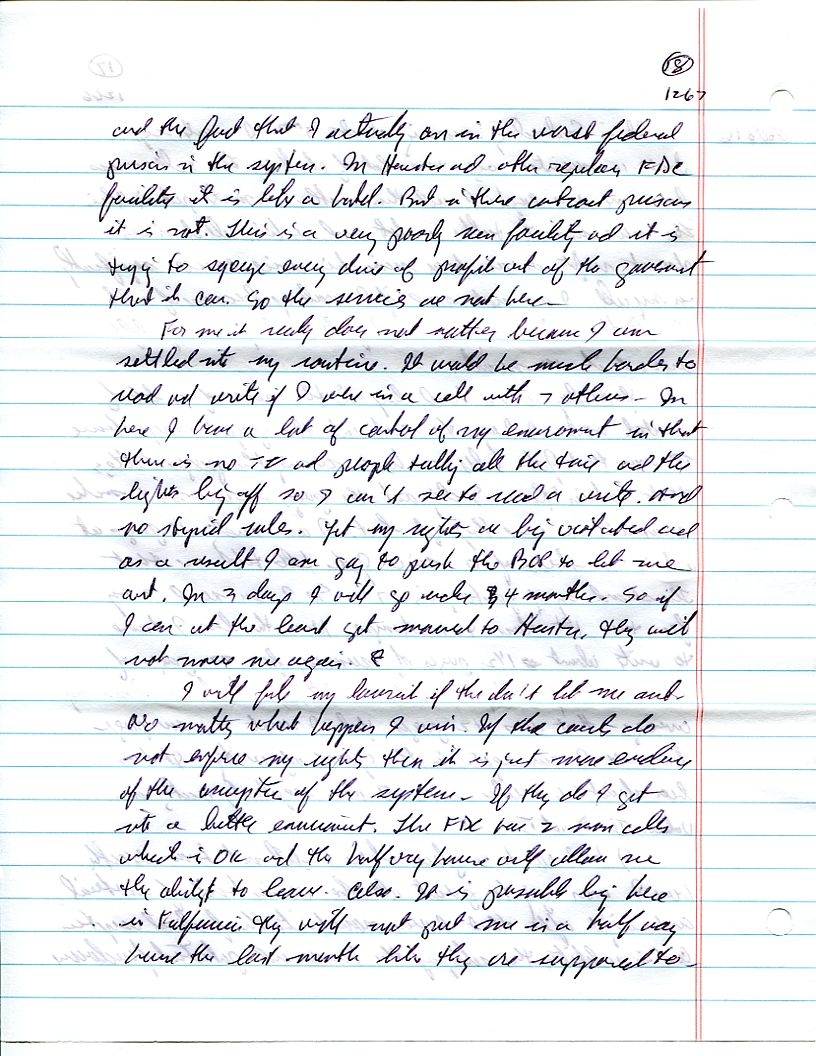 18
1267
and the fact that I actually am in the worst federal
prison in the system. In Houston ad other regular FDC
facility it is like a hotel. But in these contract prisons
it is not. This is a very poorly run facility ad it is
trying to squeeze every dime of profit out of the government
that it can. So the services are not here.
For me it really does not matter because I am
settled into my routine. It would be much harder to
read ad write if I were in a cell with 7 others - In
here I have a lot of control of my enviroment in that
there is no TV ad people talking all the time ad the
lights being off so I can't see to read or write. And
no stupid rules. Yet my rights are being violated ad
as a result I am going to push the BOP to let me
out. In 3 days I will go under 4 months. So if
I can at the least get moved to Houston, they will
not move me again.
I will file my lawsuit if the don't let me out.
No matter what happens I win. If the courts do
not enforce my rights then it is just more evidence
of the corruption of the system. If they do I get
into a better enviroment. The FDC has 2 man cells
which is OK ad the half way house will allow me
the ability to leave. Also. It is possible being here
in they will not put me in a half way
house the last month like they are supposed to